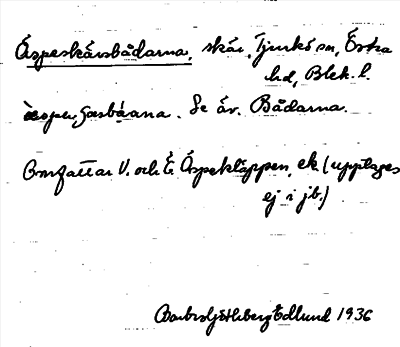 Äspeskärsbådarna, skär, Tjurkö sn, Östra
hd, Blek. l.
Se äv. Bådarna.
Omfattar V. och Ö. Äspekläppen, ek. (upptages
ej i jb.)
Barbro Götlberg Edlund 1936